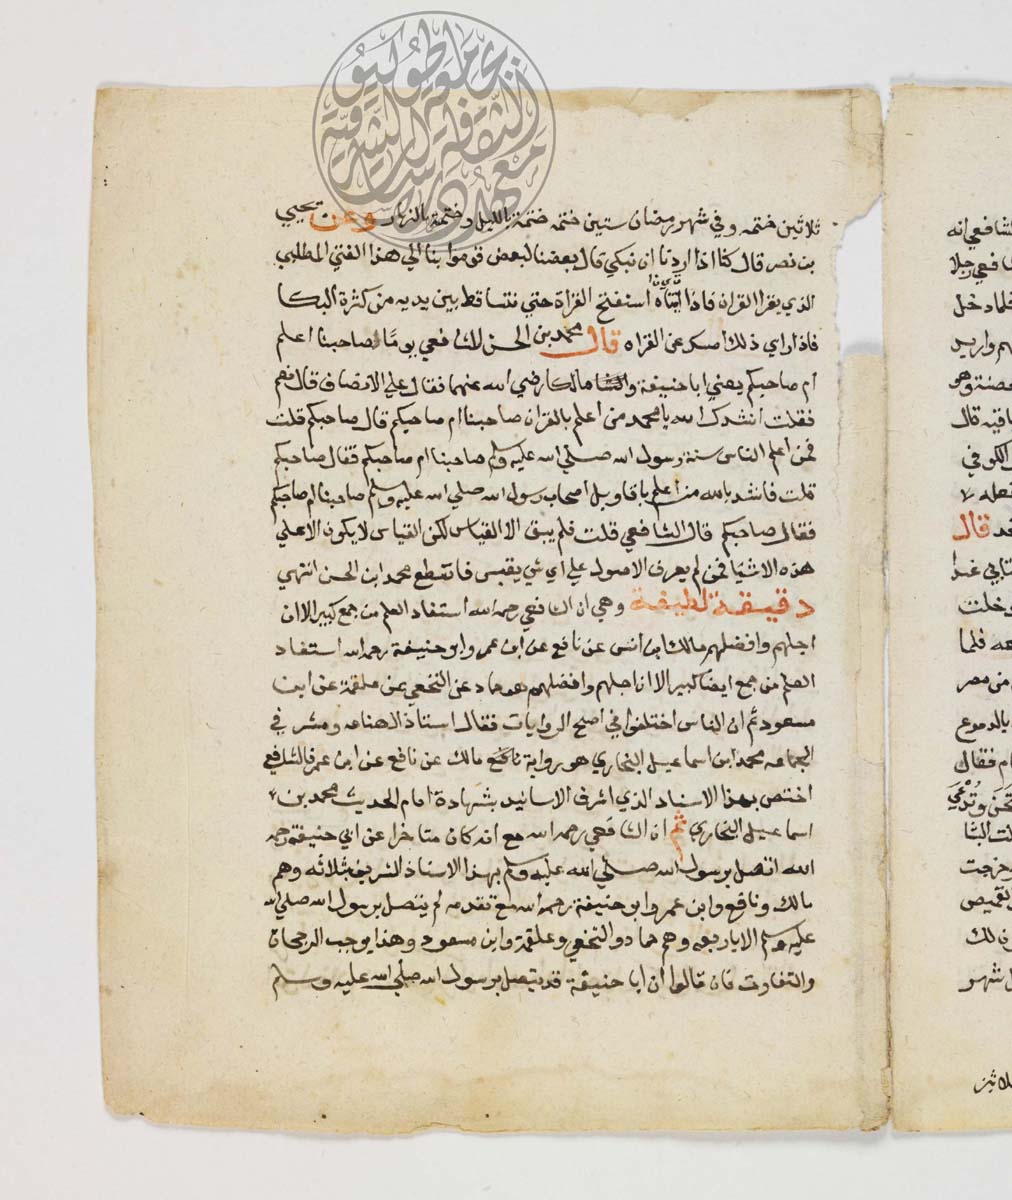 ثلاثين ختمه وفي شهر رمضان ستين ختمه ختمة بالليل وختمة بالنهار وعن يحيي
بن نصر قال كنا اذا اردنا ان نبكي قال بعضنا لبعض قوموا بنا الي هذا الفتي المطلبي
الذي يقرا القران فاذا اتيناه استفتح القراة حتي نتساقط بين يديه من كثرة البكا
فاذا راي ذلك امسك عن القراه قال محمد بن الحسن للشافعي يوما صاحبنا اعلم
ام صاحبكم يعني ابا حنيفة ومالكا رضي الله عنهما فقال علي الانصاف قال نعم
فقلت انشدك الله يا محمد من اعلم بالقران صاحبنا ام صاحبكم قال صاحبكم قلت
فمن اعلم الناس سنة رسول الله صلي الله عليه وسلم صاحبنا ام صاحبكم فقال صاحبكم
قلت فانشد بالله من اعلم باقاويل اصحاب رسول الله صلي الله عليه وسلم صاحبنا ام صاحبكم
فقال صاحبكم قال الشافعي قلت فلم يبق الا القياس لكن القياس لا يكون الا علي
هذه الاشيا فمن لم يعرف الاصول علي اي شي يقيس فانقطع محمد ابن الحسن انتهي
دقيقة لطيفة وهي ان الشافعي رحمه الله استفاد العلم من جمع كبير الا ان
اجلهم وافضلهم مالك ابن انس عن نافع عن ابن عمر وابو حنيفة رحمه الله استفاد
العلم من جمع ايضا كبير الا ان اجلهم وافضلهم حماد عن النخعي عن علقمة عن ابن
مسعود ثم ان الناس اختلفوا في اصح الروايات فقال استاذ الصناعه ومشرف
الجماعه محمد ابن اسماعيل البخاري هو رواية مالك عن نافع عن ابن عمر فالشافعي
اختص بهذا الاسناد الذي اشرف الاسانيد بشهادة امام الحديث محمد بن
اسماعيل البخاري ثم ان الشافعي رحمه الله مع انه كان متاخرا عن ابي حنيفة رحمه
الله اتصل برسول الله صلي الله عليه وسلم بهذا الاسناد الشريف بثلاثه وهم
مالك ونافع وابن عمر وابو حنيفة رحمه الله مع تقدمه لم يتصل برسول الله صلي الله
عليه وسلم الا باربعه وهم حماد والنخعي وعلقمة وابن مسعود وهذا يوجب الرجحان
والتفاوت فان قالوا ان ابا حنيفة قد يتصل برسول الله صلي الله عليه وسلم